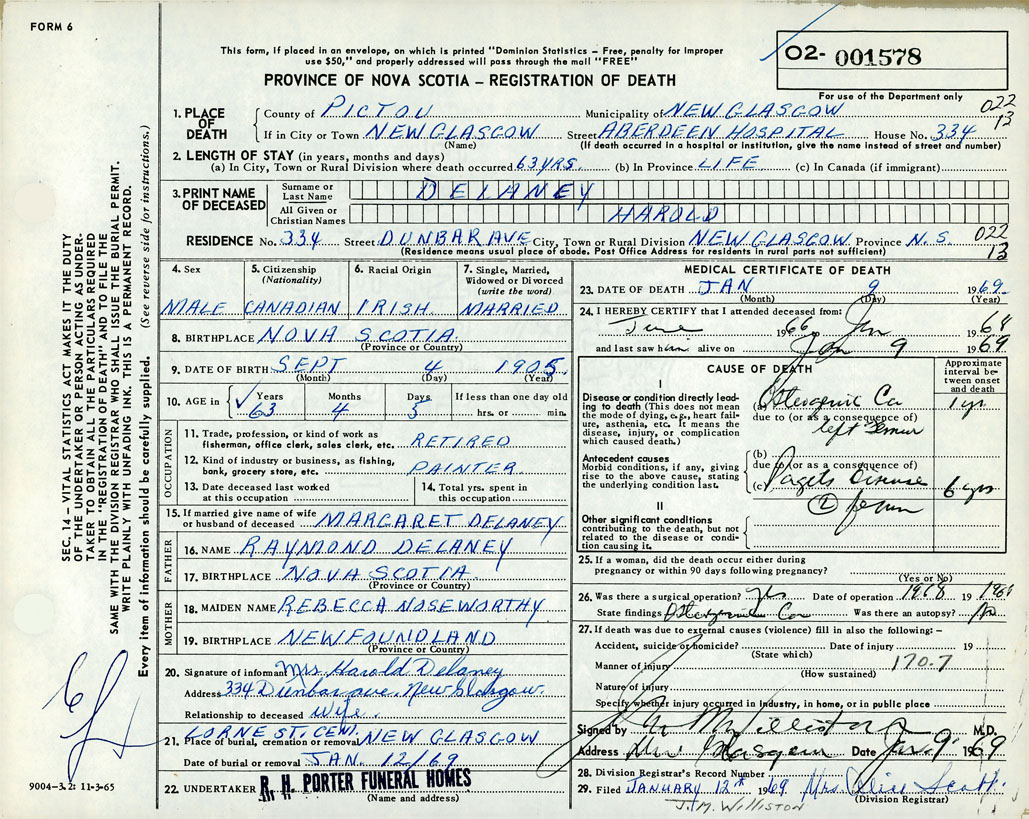 FORM 6
This form, if placed in an envelope, on which is printed "Dominion Statistics - Free, penalty for improper
use $50," and properly addressed will pass through the mail "FREE"
PROVINCE OF NOVA SCOTIA - REGISTRATION OF DEATH
O2- 001578
For use of the Department only
1. PLACE OF DEATH
County of PICTOU Municipality of NEW GLASGOW 022 13
If in City or Town NEW GLASGOW Street ABERDEEN HOSPITAL House No. 334
(Name) (If death occurred in a hospital or institution, give the name instead of street and number)
2. LENGTH OF STAY (in years, months and days)
(a) In City, Town or Rural Division where death occurred 63 YRS. (b) In Province LIFE (c) In Canada (if immigrant)
3. PRINT NAME OF DECEASED
Surname or Last Name DELANEY
All Given or Christian Names HAROLD
RESIDENCE No. 334 Street DUNBAR AVE City, Town or Rural Division NEW GLASGOW Province N.S. 022 13
(Residence means usual place of abode. Post Office Address for residents in rural parts not sufficient)
4. Sex MALE
5. Citizenship (Nationality) CANADIAN
6. Racial Origin IRISH
7. Single, Married, Widowed or Divorced (write the word) MARRIED
8. BIRTHPLACE NOVA SCOTIA
(Province or Country)
9. DATE OF BIRTH SEPT 4 1905
(Month) (Day) (Year)
10. AGE in Years 63 Months 4 Days 5 If less than one day old
hrs. or min.
OCCUPATION
11. Trade, profession, or kind of work as
fisherman, office clerk, sales clerk, etc. RETIRED
12. Kind of industry or business, as fishing,
bank, grocery store, etc. PAINTER
13. Date deceased last worked
at this occupation
14. Total yrs. spent in
this occupation
15. If married give name of wife
or husband of deceased MARGARET DELANEY
FATHER
16. NAME RAYMOND DELANEY
17. BIRTHPLACE NOVA SCOTIA
(Province or Country)
MOTHER
18. MAIDEN NAME REBECCA NOSEWORTHY
19. BIRTHPLACE NEWFOUNDLAND
(Province or Country)
20. Signature of informant Mrs. Harold Delaney
Address 334 Dunbar ave. New Glasgow.
Relationship to deceased Wife.
LORNE ST. CEM.
21. Place of burial, cremation or removal NEW GLASGOW
Date of burial or removal JAN. 12/69
22. UNDERTAKER R. H. PORTER FUNERAL HOMES
(Name and address)
MEDICAL CERTIFICATE OF DEATH
23. DATE OF DEATH JAN 9 1969
(Month) (Day) (Year)
24. I HEREBY CERTIFY that I attended deceased from:
June 1966 Jan 1968
and last saw him alive on Jan 9 1969
CAUSE OF DEATH
Approximate interval between onset and death
I
Disease or condition directly leading to death (This does not mean the mode of dying, e.g., heart failure, asthenia, etc. It means the disease, injury, or complication which caused death.)
(a) Osteogenic Ca 1 yr
due to (or as a consequence of)
left femur
Antecedent causes
Morbid conditions, if any, giving rise to the above cause, stating the underlying condition last.
(b)
due to (or as a consequence of)
(c) Pagets Disease 6 yrs
femur
II
Other significant conditions
contributing to the death, but not related to the disease or condition causing it.
25. If a woman, did the death occur either during
pregnancy or within 90 days following pregnancy?
(Yes or No)
26. Was there a surgical operation? Yes Date of operation 1968 19 1968
State findings Osteogenic Ca Was there an autopsy? No
27. If death was due to external causes (violence) fill in also the following: -
Accident, suicide or homicide? Date of injury 19
(State which)
Manner of injury 170.7
(How sustained)
Nature of injury
Specify whether injury occurred in industry, in home, or in public place
Signed by Williston M.D.
Address New Glasgow Date Jan 9 1969
28. Division Registrar's Record Number
29. Filed JANUARY 12th 1969 Mrs. Alice Scott
(Division Registrar)
J. M. WILLISTON
SEC. 14 - VITAL STATISTICS ACT MAKES IT THE DUTY
OF THE UNDERTAKER OR PERSON ACTING AS UNDER-
TAKER TO OBTAIN ALL THE PARTICULARS REQUIRED
IN THE "REGISTRATION OF DEATH" AND TO FILE THE
SAME WITH THE DIVISION REGISTRAR WHO SHALL ISSUE THE BURIAL PERMIT.
WRITE PLAINLY WITH UNFADING INK. THIS IS A PERMANENT RECORD.
Every item of information should be carefully supplied. (See reverse side for instructions.)
9004-3.2: 11-3-65